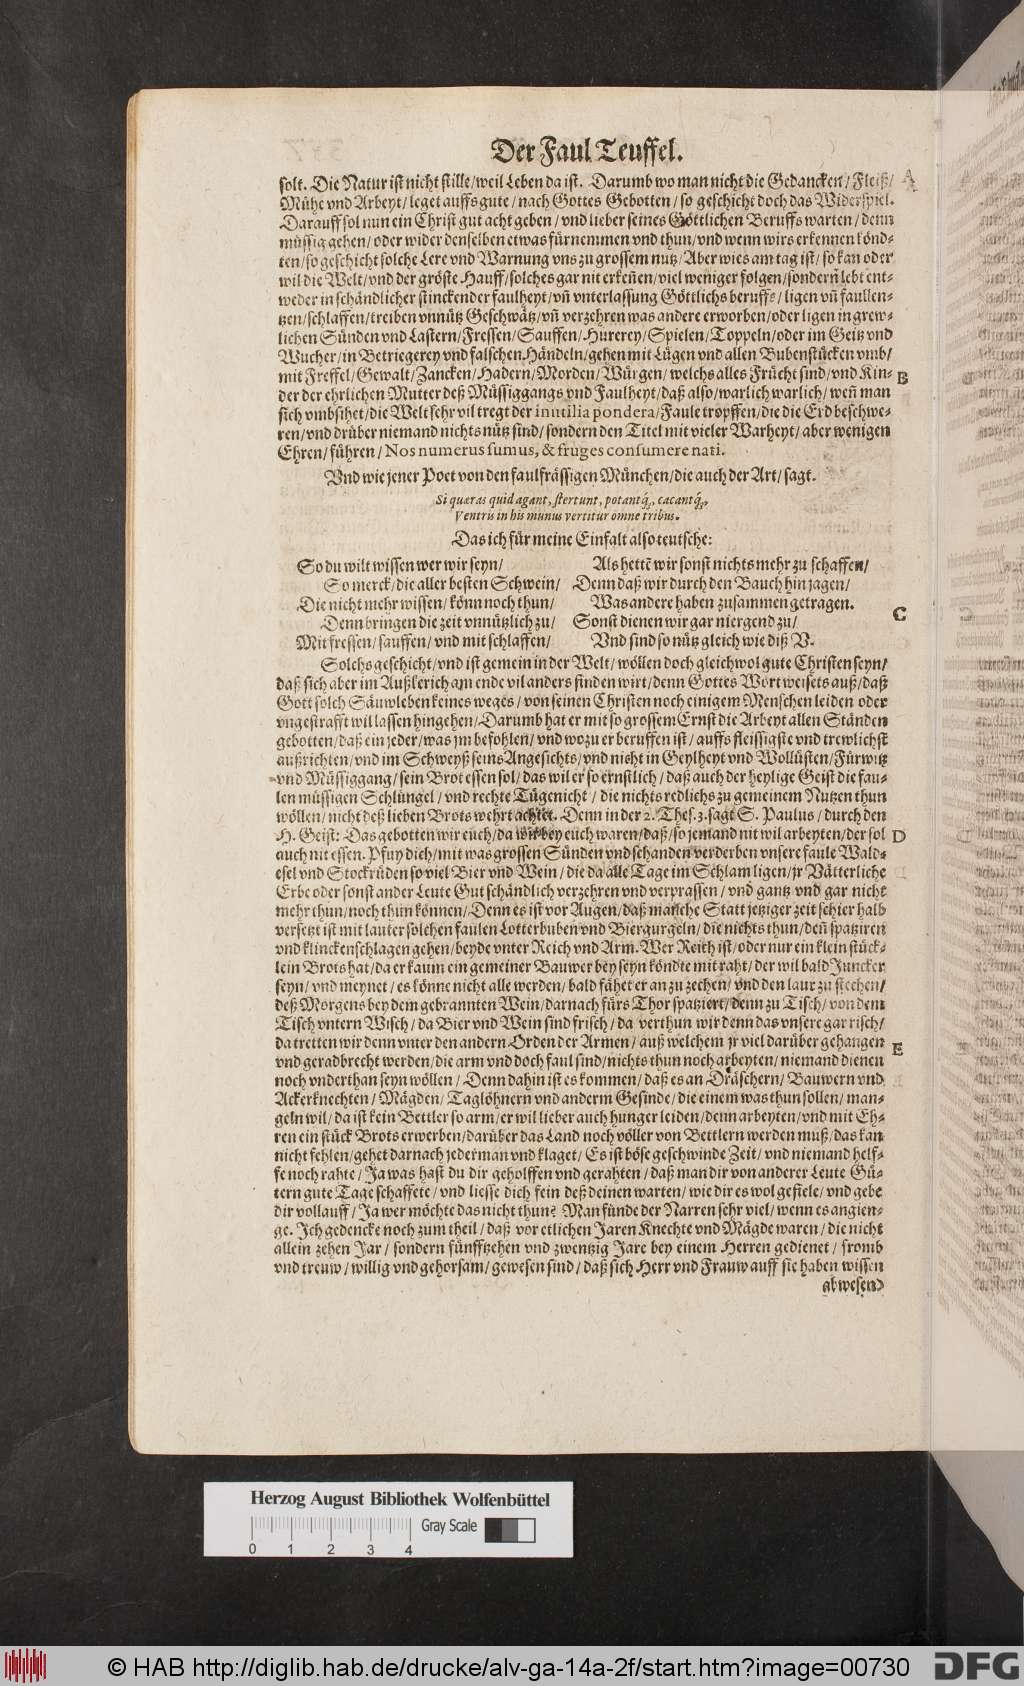 Der Faul Teuffel.
solt. Die Natur ist nicht stille/weil Leben da ist. Darumb wo man nicht die Gedancken/Fleiß/ A
Mühe vnd Arbeyt/leget auffs gute/nach Gottes Gebotten/so geschicht doch das Widerspiel.
Darauff sol nun ein Christ gut acht geben/vnd lieber seines Göttlichen Beruffs warten/denn
müssig gehen/oder wider denselben etwas fürnemmen vnd thun/vnd wenn wirs erkennen könd-
ten/so geschicht solche Lere vnd Warnung vns zu grossem nutz/Aber wies am tag ist/so kan oder
wil die Welt/vnd der gröste Hauff/solches gar nit erkeñen/viel weniger folgen/sonderñ lebt ent-
weder in schändlicher stinckender faulheyt/vñ vnterlassung Göttlichs beruffs/ligen vñ faullen-
tzen/schlaffen/treiben vnnütz Geschwätz/vñ verzehren was andere erworben/oder ligen in grew-
lichen Sünden vnd Lastern/Fressen/Sauffen/Hurerey/Spielen/Toppeln/oder im Geitz vnd
Wucher/in Betriegerey vnd falschen Händeln/gehen mit Lügen vnd allen Bubenstücken vmb/
mit Freffel/Gewalt/Zancken/Hadern/Morden/Würgen/welchs alles Frücht sind/vnd Kin- B
der der ehrlichen Mutter deß Müssiggangs vnd Faulheyt/daß also/warlich warlich/weñ man
sich vmbsihet/die Welt sehr vil tregt der inutilia pondera/Faule tropffen/die die Erd beschwe-
ren/vnd drüber niemand nichts nütz sind/sondern den Titel mit vieler Warheyt/aber wenigen
Ehren/führen/Nos numerus sumus, & fruges consumere nati.
Vnd wie jener Poet von den faulfrässigen München/die auch der Art/sagt.
Si quæras quid agant, stertunt, potantq́;, cacantq́;,
Ventris in his munus vertitur omne tribus.
Das ich für meine Einfalt also teutsche:
So du wilt wissen wer wir seyn/
So merck/die aller besten Schwein/
Die nicht mehr wissen/könn noch thun/
Denn bringen die zeit vnnützlich zu/
Mit fressen/sauffen/vnd mit schlaffen/
Als hettẽ wir sonst nichts mehr zu schaffen/
Denn daß wir durch den Bauch hin jagen/
Was andere haben zusammen getragen.
Sonst dienen wir gar niergend zu/ C
Vnd sind so nütz gleich wie diß V.
Solchs geschicht/vnd ist gemein in der Welt/wöllen doch gleichwol gute Christen seyn/
daß sich aber im Außlerich am ende vil anders finden wirt/denn Gottes Wort weisets auß/daß
Gott solch Säuwleben keines weges/von seinen Christen noch einigem Menschen leiden oder
vngestrafft wil lassen hingehen/Darumb hat er mit so grossem Ernst die Arbeyt allen Ständen
gebotten/daß ein jeder/was jm befohlen/vnd wozu er beruffen ist/auffs fleissigste vnd trewlichst
außrichten/vnd im Schweyß seins Angesichts/vnd nisht in Geylheyt vnd Wollüsten/Fürwitz
vnd Müssiggang/sein Brot essen sol/das wil er so ernstlich/daß auch der heylige Geist die fau-
len müssigen Schlüngel/vnd rechte Tügenicht/die nichts redlichs zu gemeinem Nutzen thun
wöllen/nicht deß lieben Brots wehrt achtet. Denn in der 2. Thes. 3. sagt S. Paulus/durch den
H. Geist: Das gebotten wir euch/da wir bey euch waren/daß/so jemand nit wil arbeyten/der sol D
auch nit essen. Pfuy dich/mit was grossen Sünden vnd schanden verderben vnsere faule Wald-
esel vnd Stockrüden so viel Bier vnd Wein/die da alle Tage im Schlam ligen/jr Vätterliche
Erbe oder sonst ander Leute Gut schändlich verzehren vnd verprassen/vnd gantz vnd gar nicht
mehr thun/noch thun können/Denn es ist vor Augen/daß manche Statt jetziger zeit schier halb
versetzt ist mit lauter solchen faulen Lotterbuben vnd Biergurgeln/die nichts thun/deñ spatziren
vnd klinckenschlagen gehen/beyde vnter Reich vnd Arm. Wer Reich ist/oder nur ein klein stück-
lein Brots hat/da er kaum ein gemeiner Bauwer bey seyn köndte mit raht/der wil bald Juncker
seyn/vnd meynet/es könne nicht alle werden/bald fähet er an zu zechen/vnd den laur zu stechen/
deß Morgens bey dem gebrannten Wein/darnach fürs Thor spatziert/denn zu Tisch/von dem
Tisch vntern Wisch/da Bier vnd Wein sind frisch/da verthun wir denn das vnsere gar risch/
da tretten wir denn vnter den andern Orden der Armen/auß welchem jr viel darüber gehangen E
vnd geradbrecht werden/die arm vnd doch faul sind/nichts thun noch arbeyten/niemand dienen
noch vnderthan seyn wöllen/Denn dahin ist es kommen/daß es an Dräschern/Bauwern vnd
Ackerknechten/Mägden/Taglöhnern vnd anderm Gesinde/die einem was thun sollen/man-
geln wil/da ist kein Bettler so arm/er wil lieber auch hunger leiden/denn arbeyten/vnd mit Eh-
ren ein stück Brots erwerben/darüber das Land noch völler von Bettlern werden muß/das kan
nicht fehlen/gehet darnach jederman vnd klaget/Es ist böse geschwinde Zeit/vnd niemand helf-
fe noch rahte/Ja was hast du dir geholffen vnd gerahten/daß man dir von anderer Leute Gü-
tern gute Tage schaffete/vnd liesse dich fein deß deinen warten/wie dir es wol gefiele/vnd gebe
dir vollauff/Ja wer möchte das nicht thun? Man fünde der Narren sehr viel/wenn es angien-
ge. Ich gedencke noch zum theil/daß vor etlichen Jaren Knechte vnd Mägde waren/die nicht
allein zehen Jar/sondern fünfftzehen vnd zwentzig Jare bey einem Herren gedienet/fromb
vnd treuw/willig vnd gehorsam/gewesen sind/daß sich Herr vnd Frauw auff sie haben wissen
Herzog August Bibliothek Wolfenbüttel
Gray Scale
0 1 2 3 4
© HAB http://diglib.hab.de/drucke/alv-ga-14a-2f/start.htm?image=00730
DFG